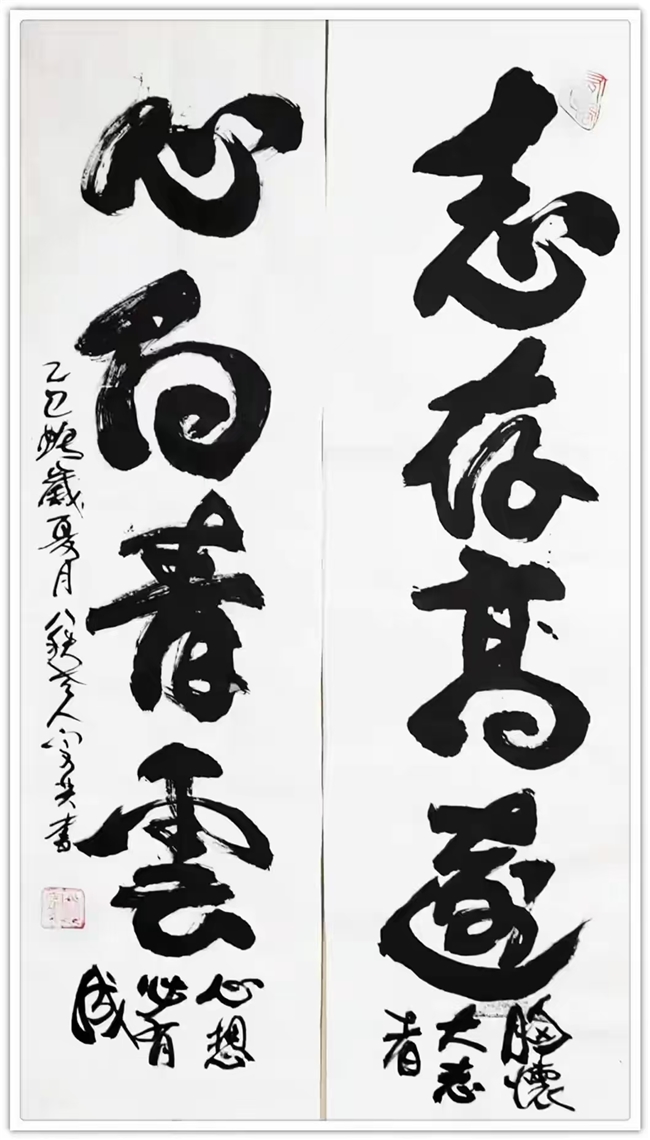 志存高遠
胸懷
大志
者
心向青雲
心想
必有
成
乙巳蛇歲夏月 八秩老人 書